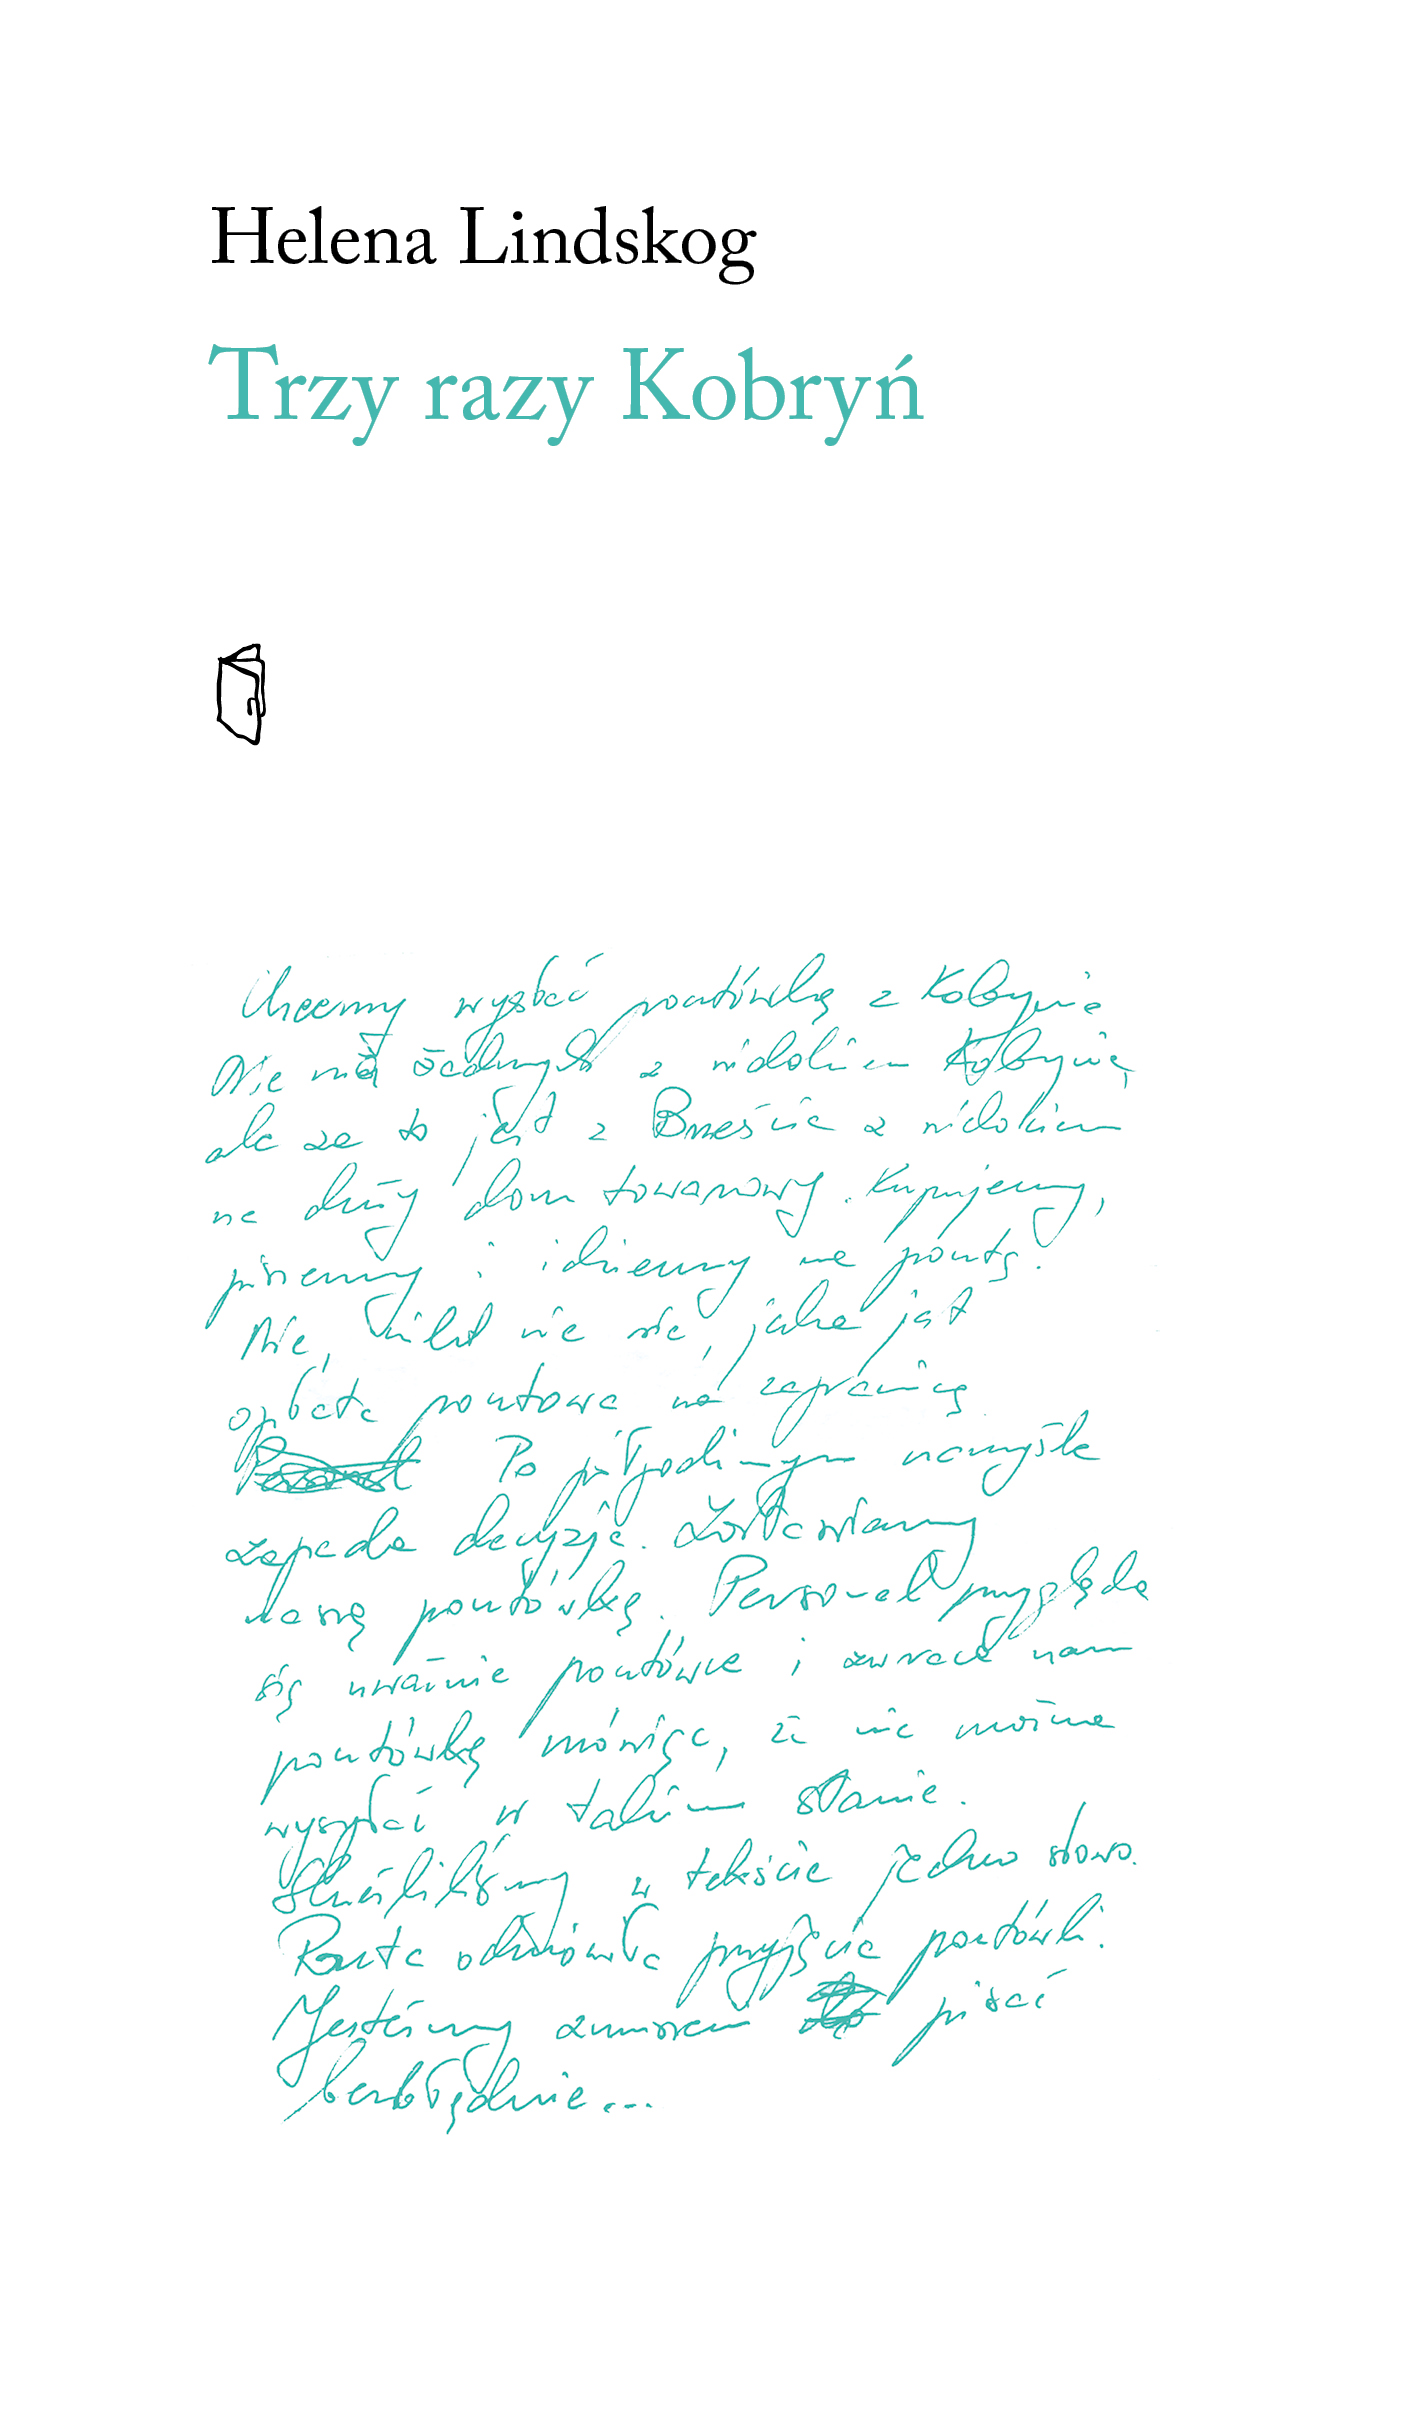 Helena Lindskog
Trzy razy Kobryń
Chcemy wysłać pocztówkę z Kobrynia
Nie ma żadnych z widokiem Kobrynia,
ale za to jest z Brześcia z widokiem
na duży dom towarowy. Kupujemy,
piszemy i idziemy na pocztę.
Nie, nikt nie wie, jaka jest
opłata pocztowa na zagranicę
Po półgodzinnym namyśle
zapada decyzja. Zostawiamy
naszą pocztówkę. Personel przygląda
się uważnie pocztówce i zwraca nam
pocztówkę mówiąc, że nie można
wysłać w takim stanie.
Skreśliliśmy w tekście jedno słowo.
Poczta odmówiła przyjęcia pocztówki.
Jesteśmy zmuszeni pisać
bezbłędnie...